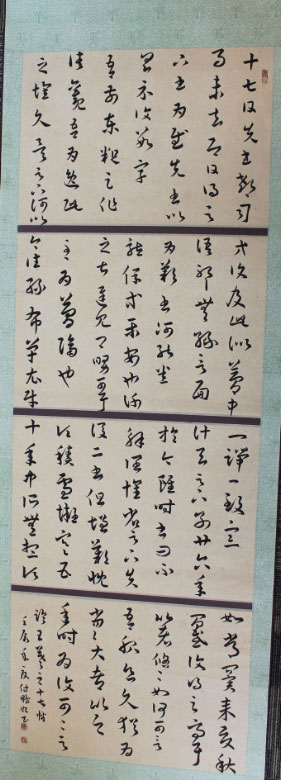 十七日先書郗司
馬未去即日得足
下書為慰先書以
具示復數字
吾前東粗足作
佳觀吾為逸民
之懷久矣足下何以
方復及此似夢中
語耶無緣言面
為歎書何能悉
龍保等平安也謝
之甚遲見卿舅可耳
至為簡隔也
今往絲布單衣財
一端示致意
計與足下別廿六年
於今雖時書問不
解闊懷省足下先
後二書但增歎慨
頃積雪凝寒五
十年中所無想頃
如常冀來夏秋
間或復得足下問耳
比者悠悠如何可言
吾服食久猶為
劣劣大都比之
年時為復可可
臨王羲之十七帖